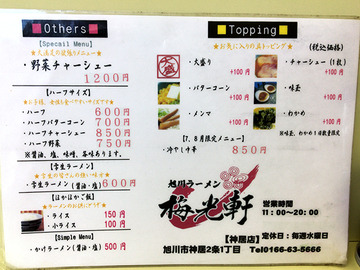 ■Others■
【Specail Menu】
・野菜チャーシュー
1200円
【ハーフサイズ】
・ハーフ 600円
・ハーフバターコーン 700円
・ハーフチャーシュー 850円
・ハーフ野菜 750円
※醤油、塩、味噌、各味あります。
【学生ラーメン】
・学生ラーメン(醤油・塩) 600円
【ほかほかご飯】
・ライス 150円
・小ライス 100円
【Simple Menu】
・かけラーメン(醤油・塩) 500円
■Topping■
★お気に入りの品トッピング★
(税込価格)
・大盛り +100円
・チャーシュー(1枚) +100円
・バターコーン +100円
・味玉 +100円
・メンマ +100円
・わかめ +100円
【7、8月限定メニュー】
・冷やし中華 850円
旭川ラーメン
梅光軒
【神居店】
営業時間
11:00~20:00
定休日:毎週水曜日
旭川市神居2条1丁目 Tel0166-63-5666